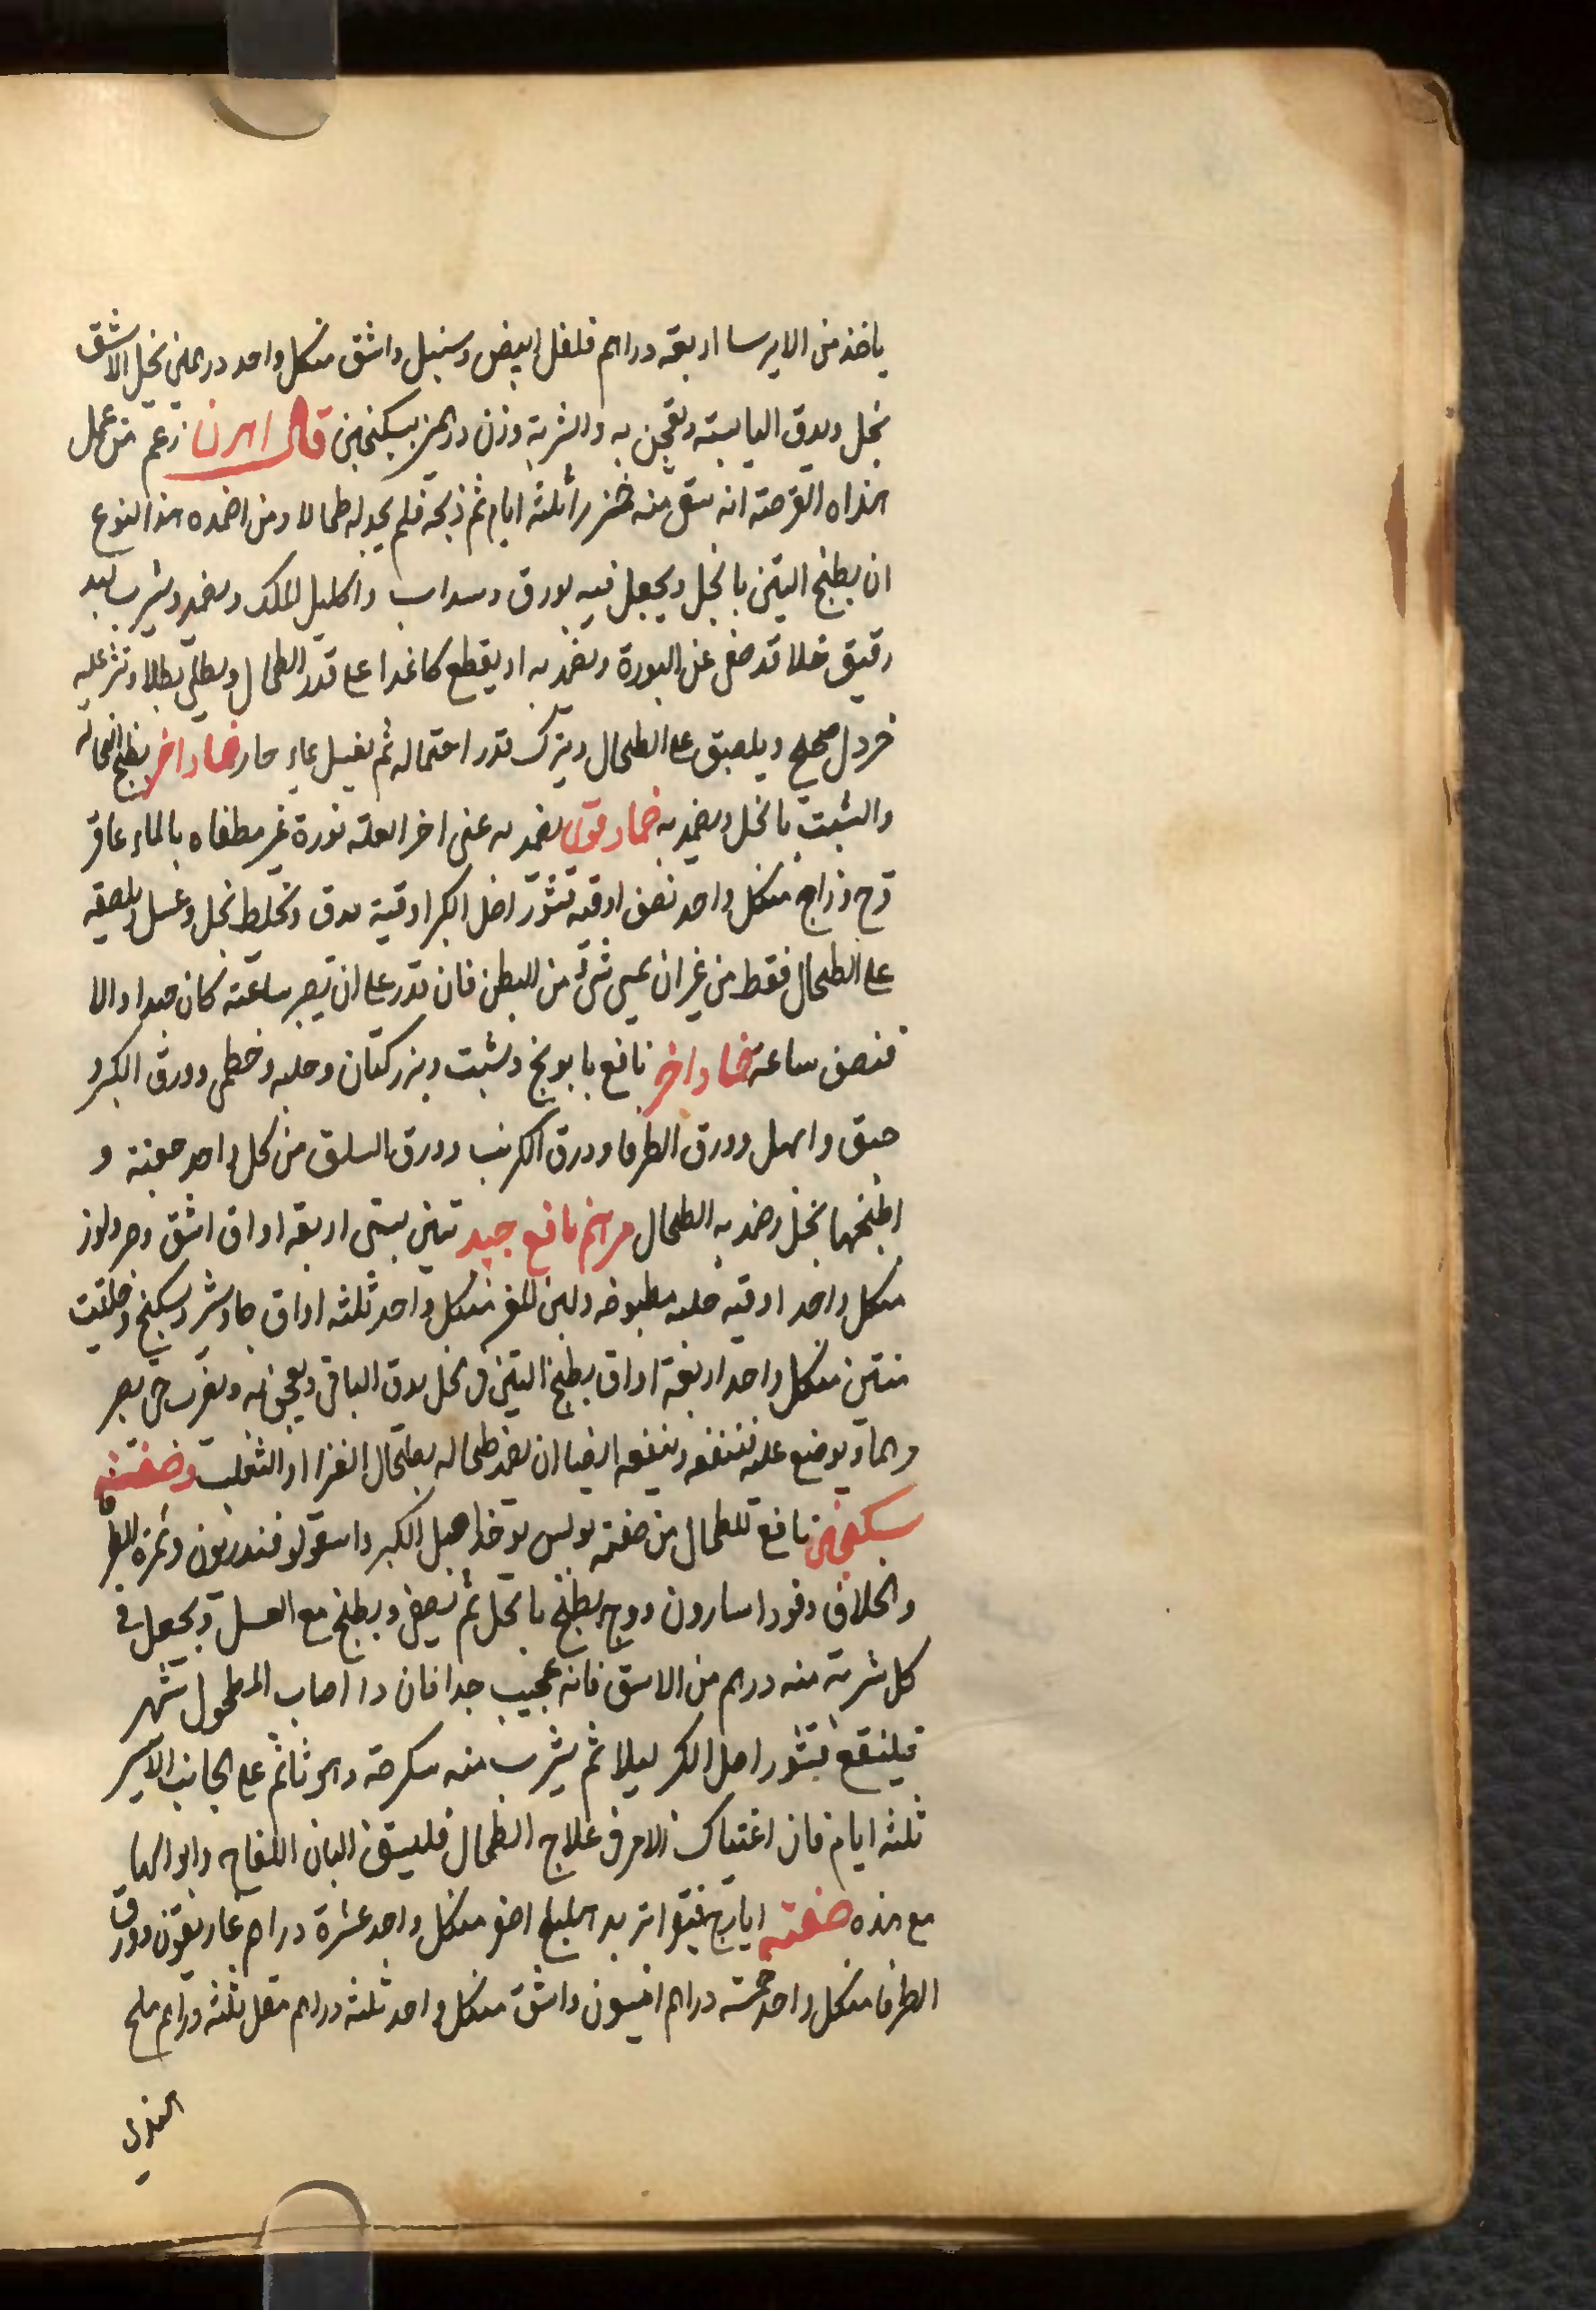 ياخذ من الايرسا اربعة دراهم فلفل ابيض وسنبل واشق منكل واحد درهمين نحل الاشق
بخل ويدق اليابسة ويعجن به والشربة وزن درهمين بسكنجبين قال اهرن زعم من عمل
هذاه القرصة انه سقى منه خنزيرا ثلثة ايام ثم ذبحه فلم يجد له طحالا ومن اضمده هذا النوع
ان يطبخ التين بالخل ويجعل فيه بورق وسداب واكليل الملك ويضمد ويشرب بعد
رقيق خلا قد صفى عن البورة ويضمد به او يقطع كاغدا على قدر الطحال ويطلى بطلا وتنثر عليه
خردل صحيح ويلصق على الطحال ويترك بقدر احتماله ثم يغسل بماء حار ضماد اخر يطبخ النخالة
والشبت بالخل ويضمد به ضماد قوى يضمد به عنى اخر العلة نورة غير مطفاه بالماء عاقر
قرح وزاج منكل واحد نصف اوقيه قشور اصل الكبر اوقية يدق وتخلط بخل وعسل ويلصقه
على الطحال فقط من غير ان يمس شئ من البطن فان قدر على ان يصبر ساعة كان جيدا والا
فنصف ساعة ضماد اخر نافع بابونج وشبت وبزر كتان وحلبه وخطمى وورق الكبر و
حبق وابهل وورق الطرفا وورق الكرنب وورق السلق من كل واحد حفنة و
اطبخها بخل وضمد به الطحال مرهم نافع جيد تين بستى اربعه اواق اشق وحر ولوز
منكل واحد اوقيه حلبه مطبوخه ولبن للغز منكل واحد ثلثه اواق جاوشير وسكبنج وحلتيت
منتن منكل واحد اربعة اواق يطبخ التين فى الخل يدق الباقى ويعجن به ويضرب حتى يصير
مرهما ويوضع عليه فينفعه وينفعه ايضا ان يضمد طحاله بطحال الغزا او الثعلب وصفته
سكنجبين نافع للطحال من صفة بولس توخذ اصل الكبر واسقولوفندريون وثمرة الطرفا
والخلاف وفو واسارون ووج يطبخ بالخل ثم يصفى ويطبخ مع العسل ويجعل فى
كل شربة منه درهم من الاشق فانه عجيب جدا فان دا اصاب المطحول شهر
فلينقع قشور اصل الكبر ليلا ثم يشرب منه سكرجة وهو نائم على الجانب الايسر
ثلثه ايام فان اغتياك الامر فى علاج الطحال فليسق البان اللقاح وابوالها
مع هذه صفته ايارج فيقرا تربد اهليلج اصفر منكل واحد عشرة دراهم غاريقون وورق
الطرفا منكل واحد خمسة دراهم انيسون واشق منكل واحد ثلثة دراهم مقل ثلثة دراهم ملح
الهندى